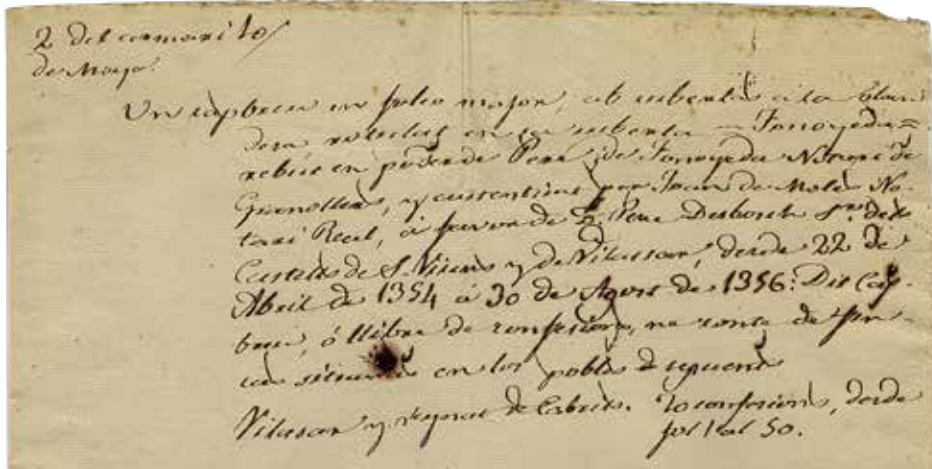 2 del armari 10
de Mayo.
Un capbreu en folio major, ab cuberta á la
dera rotulat en sa cuberta = Fonoyeda =
rebut en poder de Pere de Fonoyeda Notari de
Granollers, y autentich per Joan de Mola No-
tari Real, á favor de Pere Desbosch Sr. dels
Castells de S. Vicens y de Vilassar, desde 22 de
Abril de 1354 á 30 de Agost de 1356: Dit Cap-
breu, ó llibre de confesions, ne conté de fin-
cas situadas en los pobles seguents
Vilasar y de Cabrils. confesions, desde
fol 1 al 50.